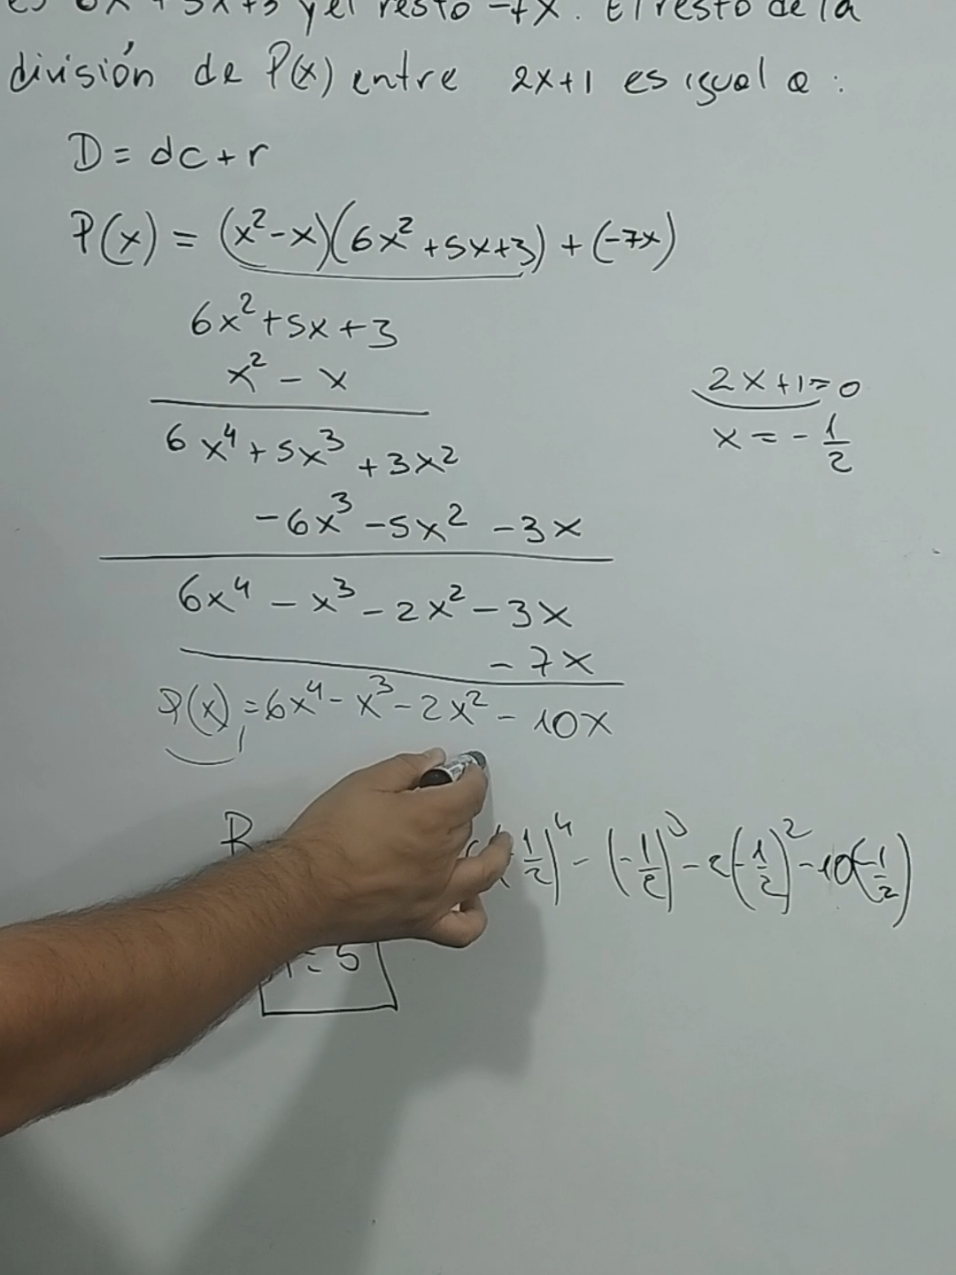 y el resto -7x. El resto de la
división de P(x) entre 2x+1 es igual a:
D = dc + r
P(x) = (x² - x)(6x² + 5x + 3) + (-7x)
6x² + 5x + 3
x² - x
2x + 1 = 0
6x⁴ + 5x³ + 3x²
x = - 1/2
-6x³ - 5x² - 3x
6x⁴ - x³ - 2x² - 3x
- 7x
P(x) = 6x⁴ - x³ - 2x² - 10x
1/2)⁴ - (-1/2)³ - 2(-1/2)² - 10(-1/2)
= 5